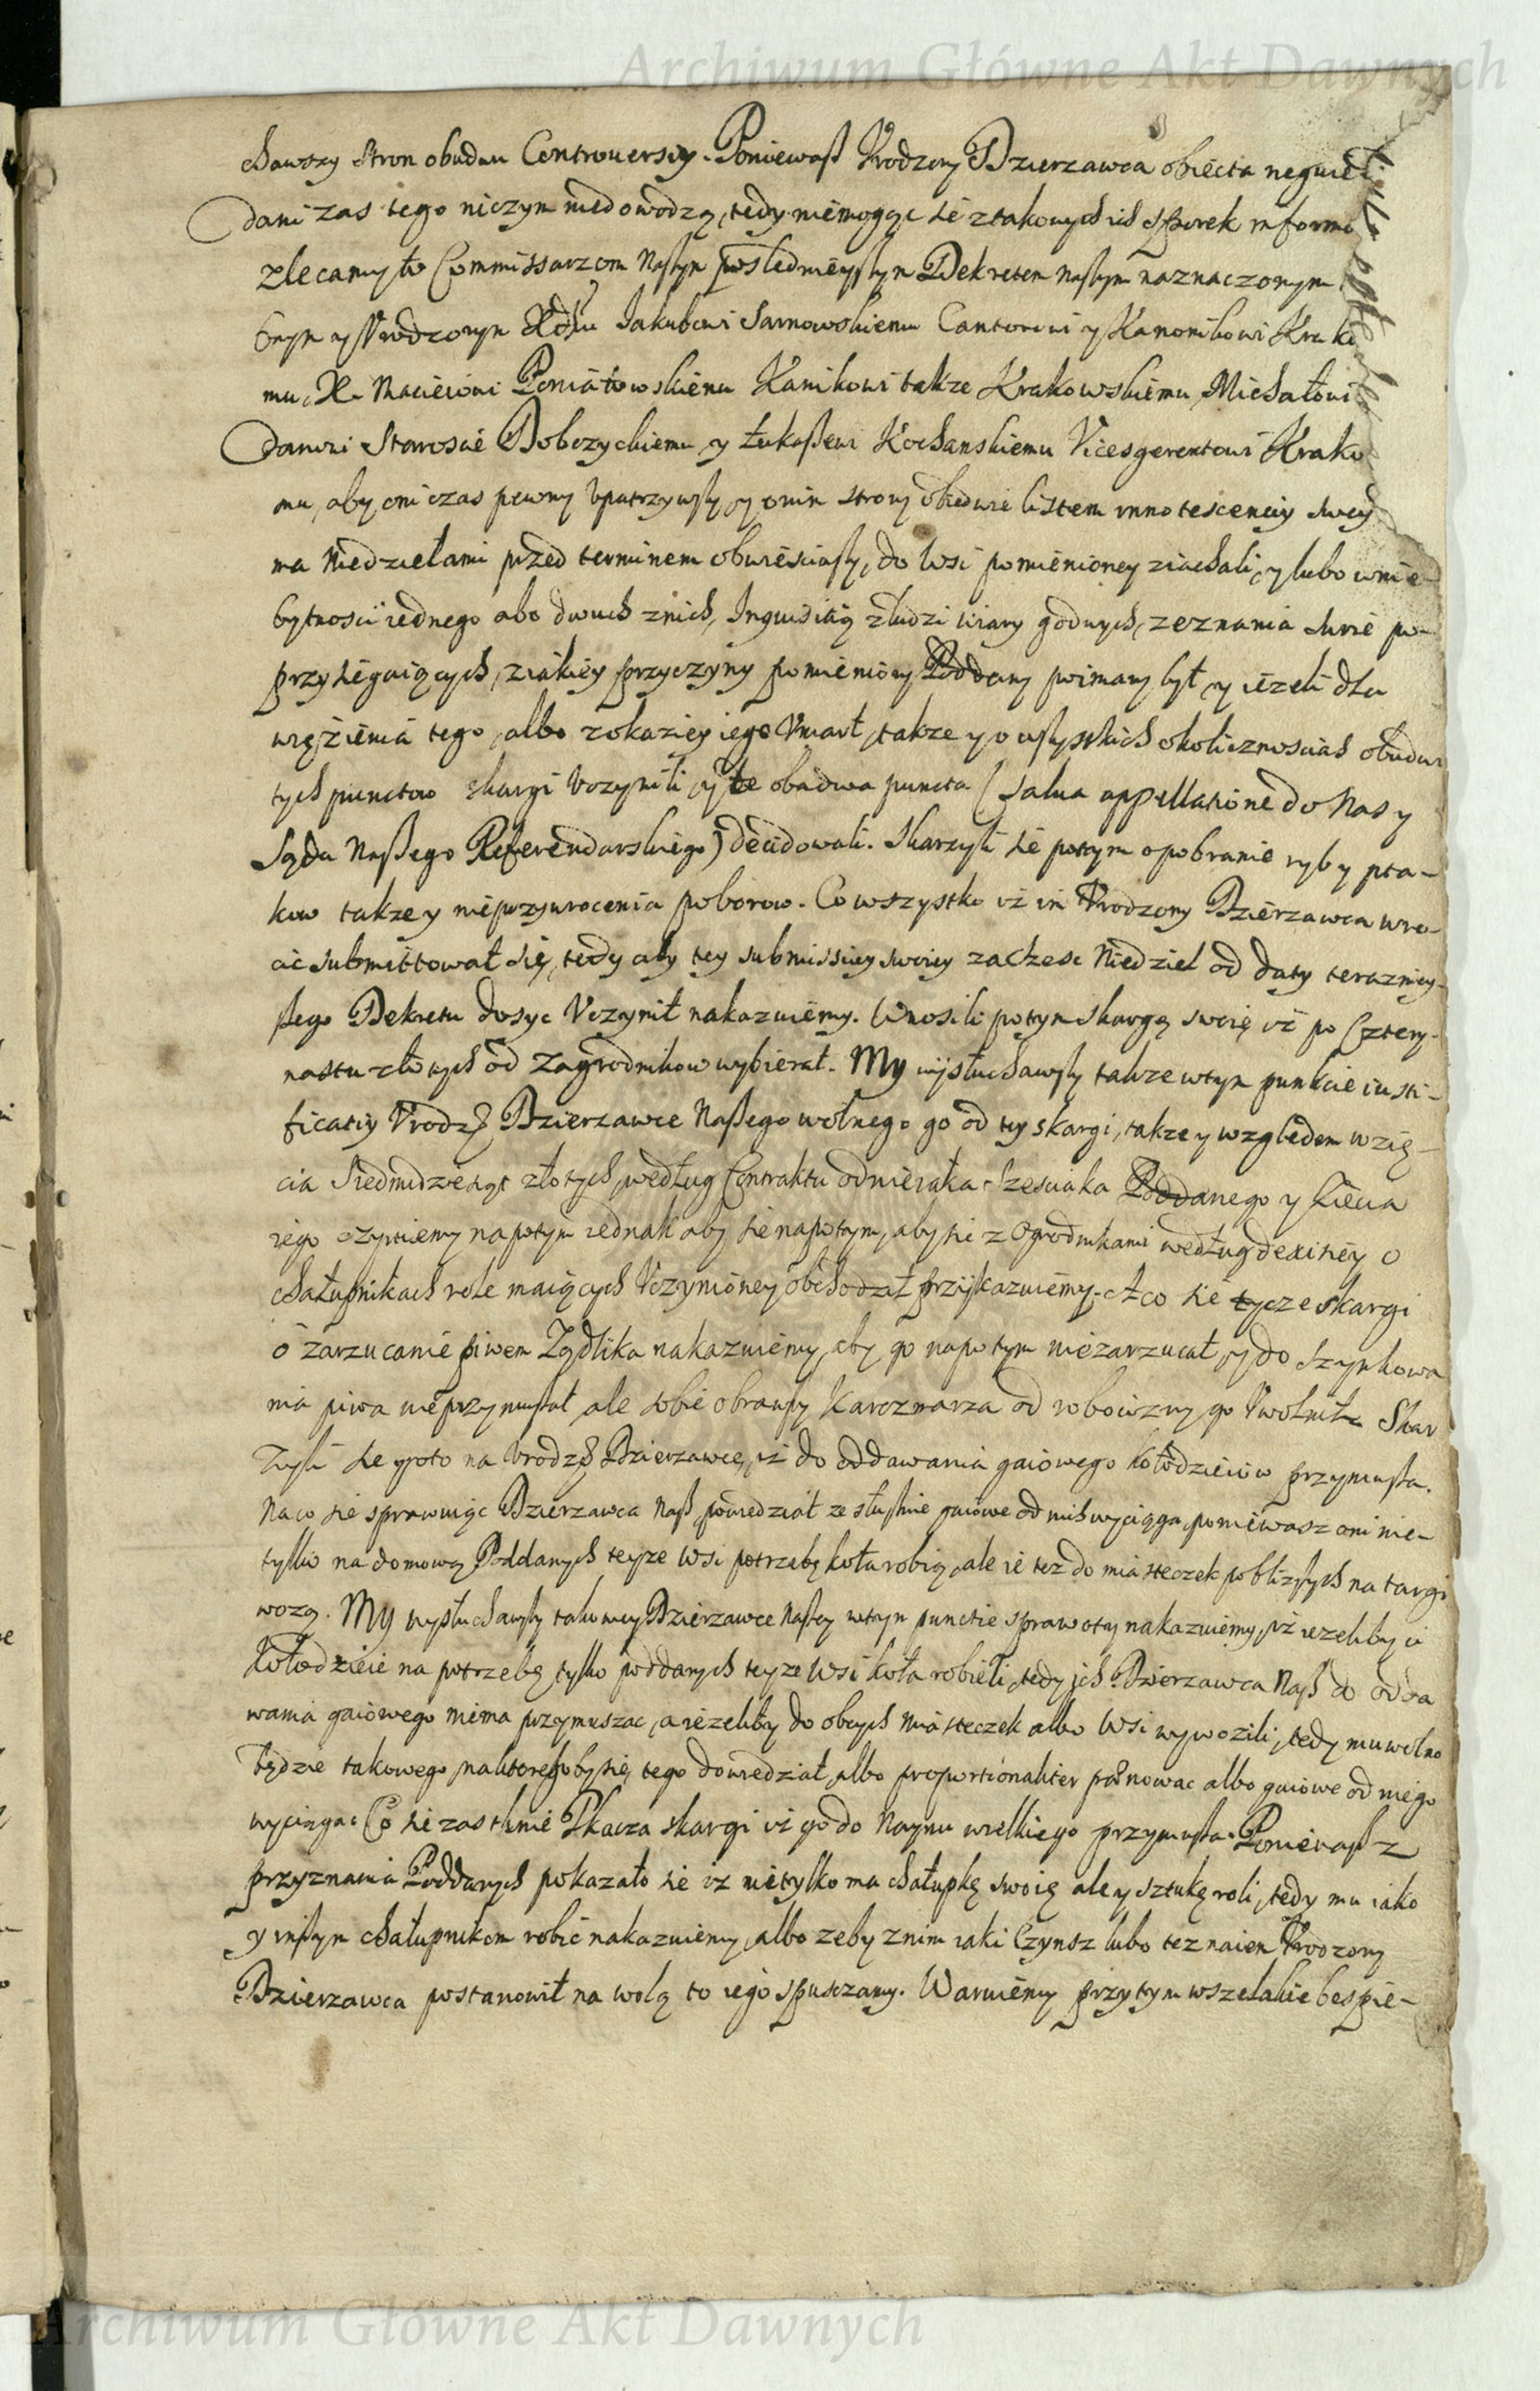 Archiwum Główne Akt Dawnych
chawszy stron obudwu Controuersiy. Poniewasz Vrodzony Dzierzawca obiecta neguie
dani zas tego niczym niedowodzą, tedy niemogąc sie ztakowych ich sporek informo
zlecamy to Commissarzom Naszym posledniejszym Dekretem naszym naznaczonym
bnym y Vrodzonym Xdzu Jakubowi Sarnowskiemu Cantorowi y Kanonikowi Krako
mu, X. Macieiowi Poniatowskiemu Kanikowi takze Krakowskiemu, Michałowi
Staroscie Dobczyckiemu y Łukaszewi Kochanskiemu Vicesgerentowi Krako
mu, aby oni czas pewny vpatrzywszy, y onim strony obiedwie listem innotescenciy swey
ma Niedzielami przed terminem obwiesciwszy, do Wsi pomienioney ziachali, y lubo wnie
bytnosci iednego abo dwuch znich, Inquisitią zludzi wiary godnych, zeznania swe po
przysięgaiących, ziakiey przyczyny pomieniony Poddany poimany był y iezeli dla
więzienia tego, albo zokaziey iego Vmarł, takze y o wszystkich okolicznosciach obudwu
tych punctow skargi vczynili, y te obadwa puncta (salua appellatione do Nas y
Sądu Naszego Referendarskiego) decidowali. Skarzyli sie potym o pobranie ryb y pta-
kow takze y nieprzywrocenia poborow. Co wszystko iż im Vrodzony Dzierzawca wro-
cić submittował się, tedy aby tey submissiey swoiey za Czesc Niedziel od daty terazniey-
szego Dekretu dosyc Vczynił nakazuiemy. Wnosili potym skargę swoię iż po Cztery-
nastu złotych od Zagrodnikow wybierał. My wysłuchawszy takze wtym punkcie iusti-
ficatiy Vrodzo Dzierzawce Naszego wolnego go od tey skargi, takze y względem wzię-
cia Siedmidziesiąt złotych, według Contraktu odnieiaka Szesciaka Poddanego y Ziecia
iego czyniemy napotym iednak aby sie napotym, aby sie z Ogrodnikami według dexisiey o
chałupnikach role maiących Vczynioney obchodził przykazuiemy. A co sie tycze skargi
o zarzucanie piwem Zydlika nakazuiemy, aby go napotym niezarzucał, y do szynkowa
nia piwa nieprzymuszał, ale sobie obrawszy karczmarza od robocizny go Vwolnił. Skar
zyli sie y oto na Vrodzo Dzierzawce, iż do oddawania gaiowego kołodzieiow przymusza.
Na co sie sprawuiąc Dzierzawca Nasz, powiedział ze słusznie gaiowe od nich wyciąga, poniewasz oni nie-
tylko na domową Poddanych teyze Wsi potrzebę koła robią, ale ie tez do miasteczek poblizszych na targi
wozą. My wysłuchawszy takowey Dzierzawce Naszey wtym punctie sprawoty nakazuiemy, iż iezeliby ci
Kołodzieie na potrzebę tylko poddanych teyze Wsi koła robieli, tedy ich Dzierzawca Nasz do odda
wania gaiowego niema przymuszac, a iezeliby do obcych Miasteczek albo Wsi wywozili, tedy mu wolno
będzie takowego, naktoregoby się tego dowiedział, albo proportionaliter pamowac albo gaiowe od niego
wyciągac Co sie zas tknie Tkacza skargi iż go do Naymu wielkiego przymusza. Poniewasz z
przyznania Poddanych pokazało sie iz nietylko ma chałupkę swoię ale y sztukę roli, tedy mu iako
y inszym chałupnikom robić nakazuiemy, albo zeby znim iaki Czynsz lubo tez naiem Vrodzony
Dzierzawca postanowił na wolą to iego spusczamy. Waruiemy przytym wszelakie bespie-
Archiwum Główne Akt Dawnych